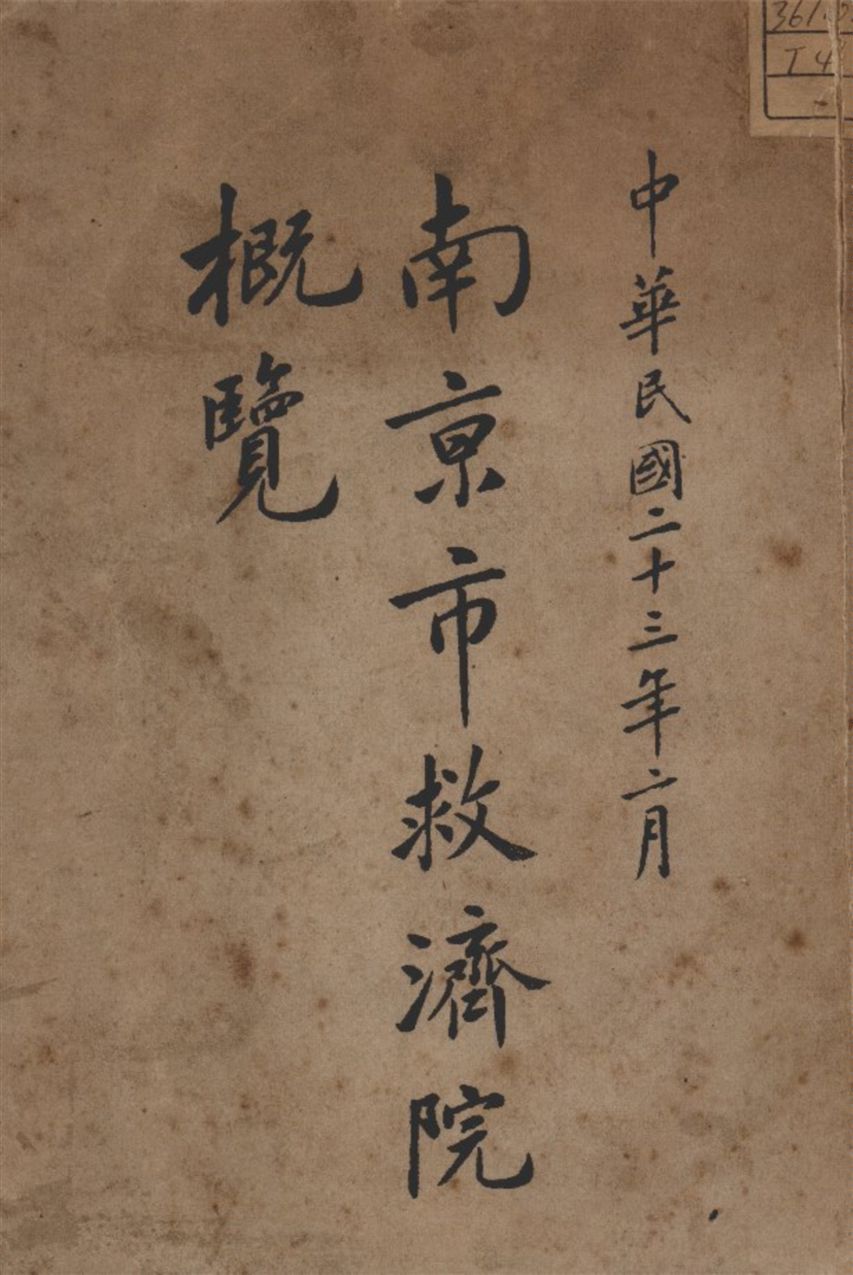 中華民國二十三年二月
南京市救濟院
概覽